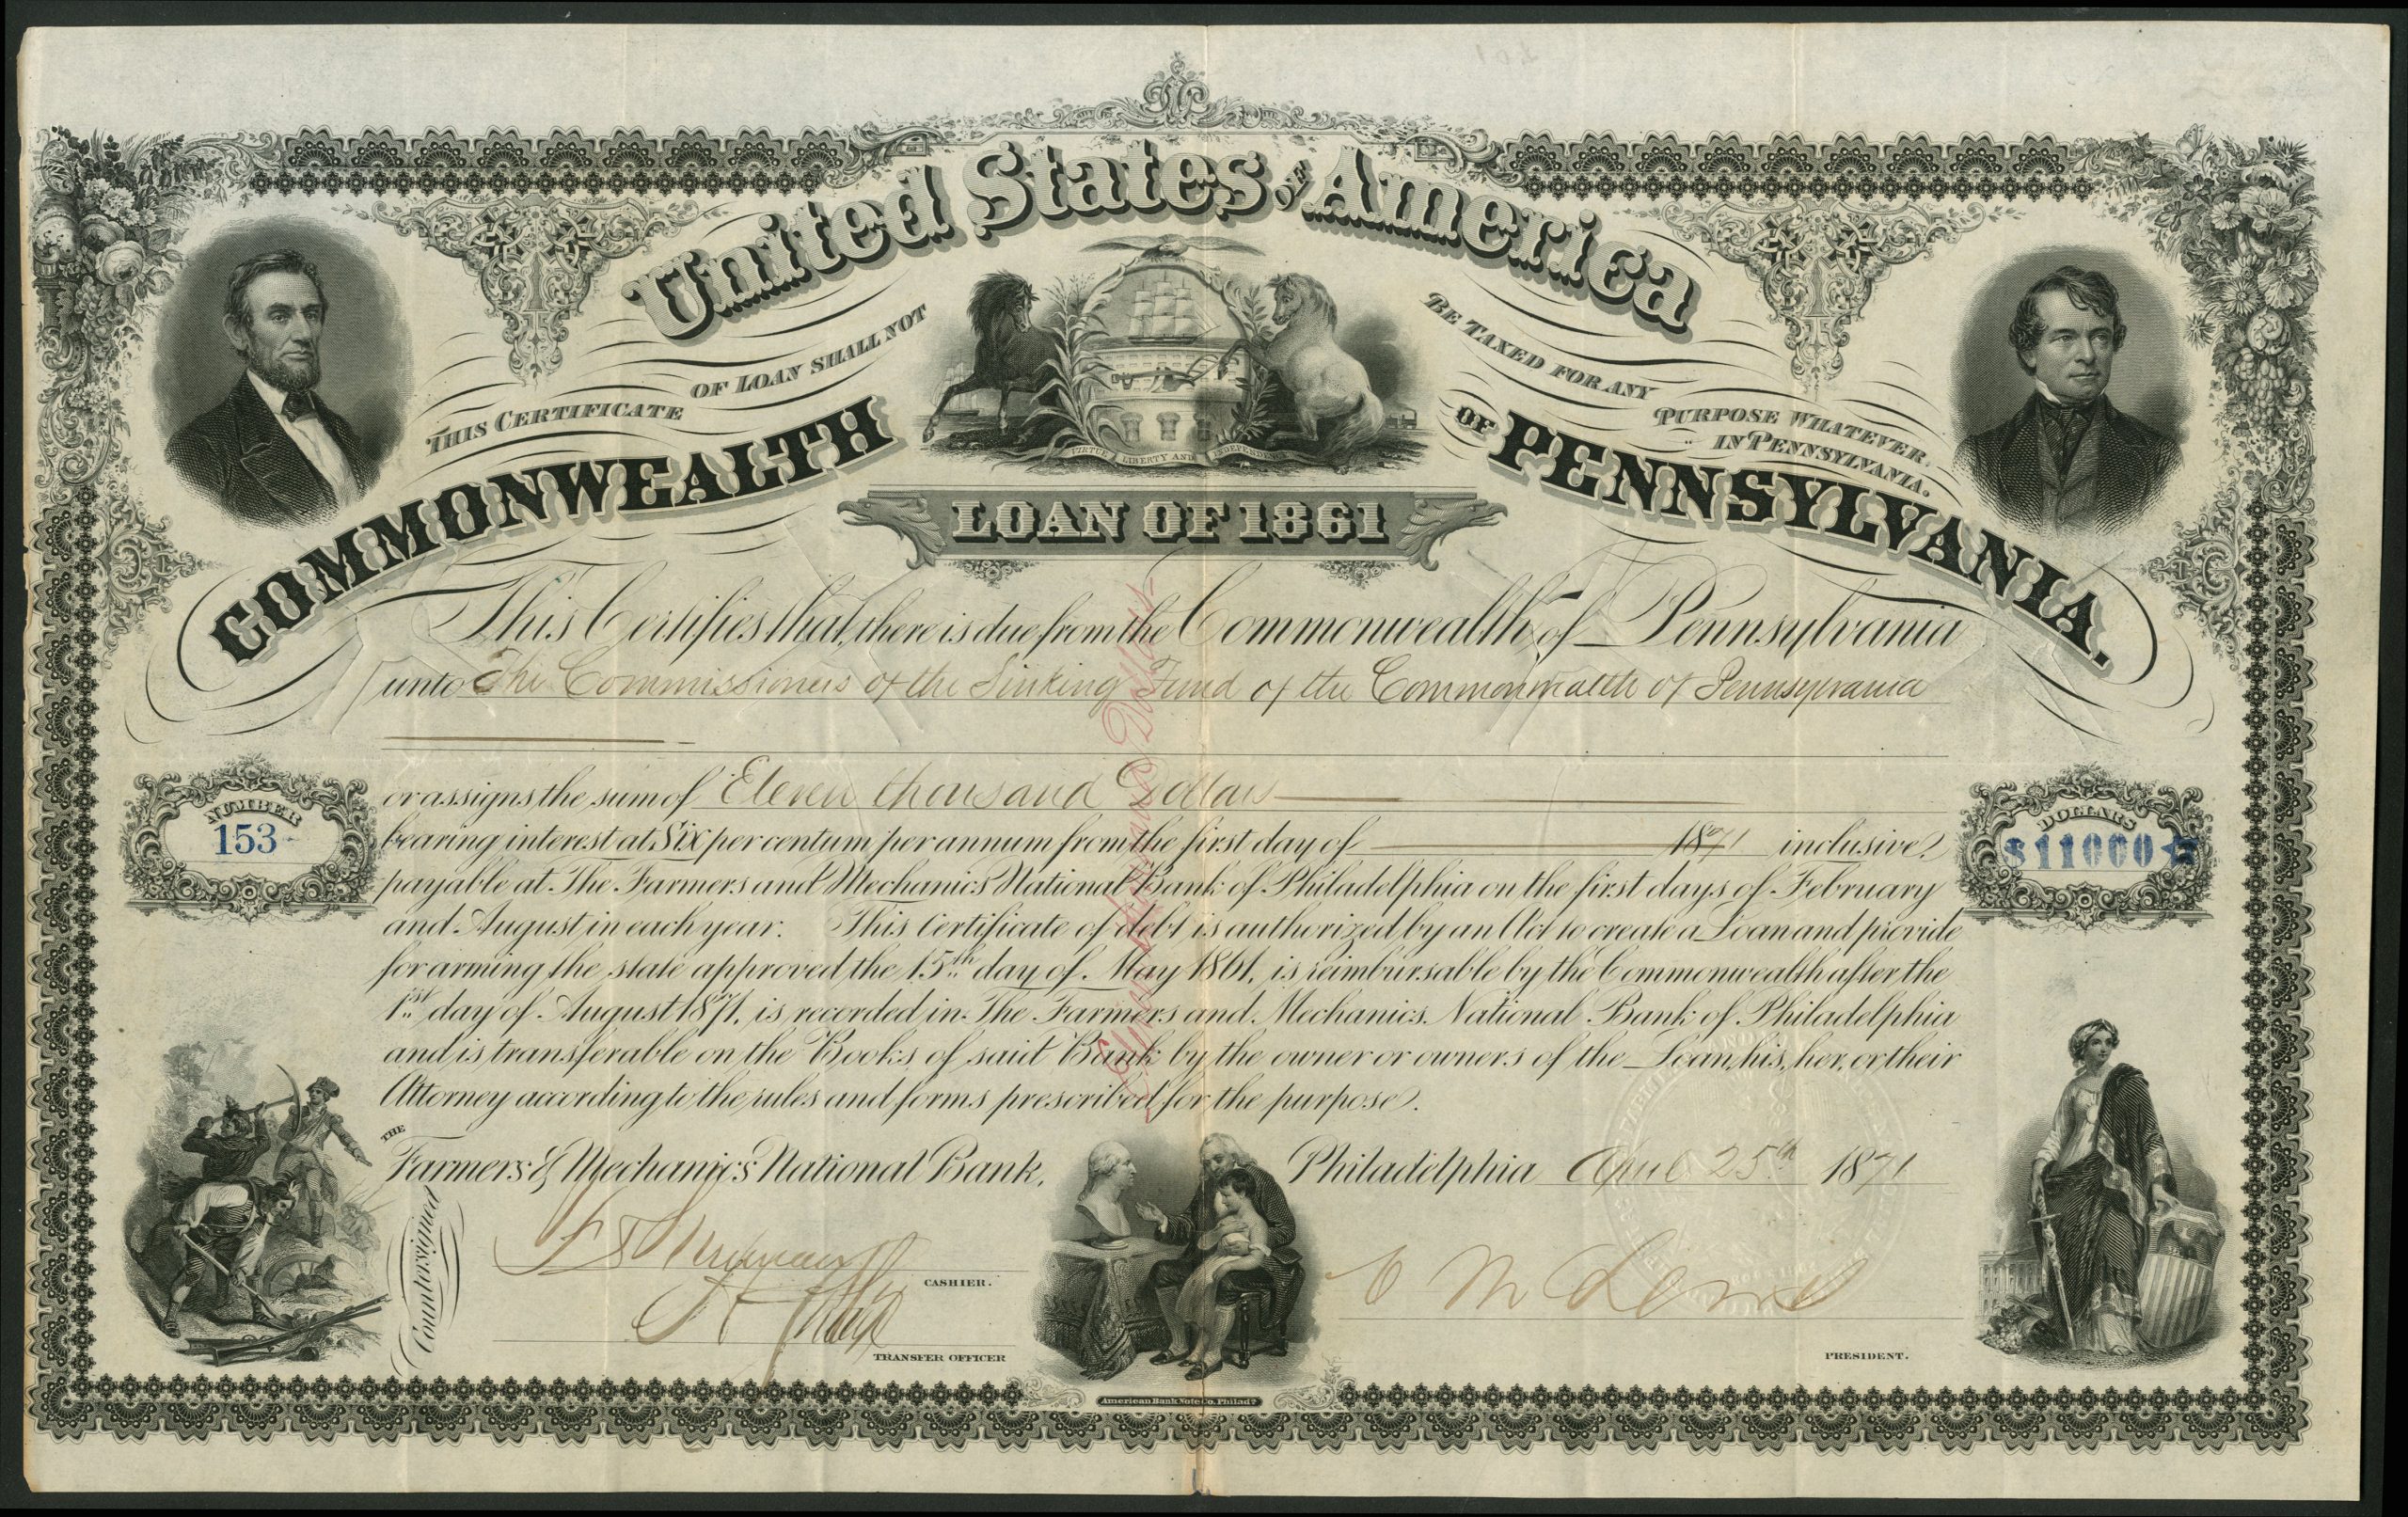 United States of America
THIS CERTIFICATE OF LOAN SHALL NOT BE TAXED FOR ANY PURPOSE WHATEVER IN PENNSYLVANIA.
VIRTUE LIBERTY AND INDEPENDENCE
COMMONWEALTH OF PENNSYLVANIA.
LOAN OF 1861
This Certifies that, there is due from the Commonwealth of Pennsylvania
unto The Commissioners of the Sinking Fund of the Commonwealth of Pennsylvania
or assigns the sum of Eleven thousand Dollars
NUMBER
153
DOLLARS
$11000
bearing interest at Six per centum per annum from the first day of 1871 inclusive,
payable at The Farmers and Mechanics National Bank of Philadelphia on the first days of February
and August in each year. This Certificate of debt is authorized by an Act to create a Loan and provide
for arming the state approved the 15th day of May 1861, is reimbursable by the Commonwealth after the
1st day of August 1871, is recorded in The Farmers and Mechanics National Bank of Philadelphia
and is transferable on the Books of said Bank by the owner or owners of the Loan, his, her, or their
Attorney according to the rules and forms prescribed for the purpose.
Eleven thousand Dollars
THE
Farmers & Mechanics National Bank,
Philadelphia April 25th 1871
Countersigned
CASHIER.
TRANSFER OFFICER
PRESIDENT.
American Bank Note Co. Philada